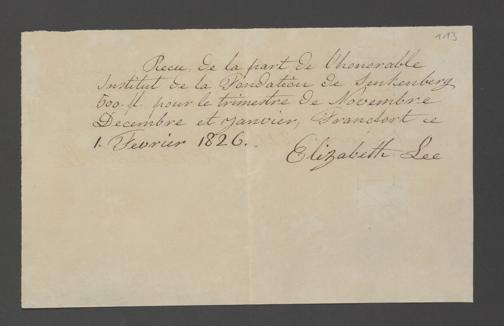 113
Recu de la part de l'honerable
Institut de la Fondation de Senkenberg
500 fl. pour le trimestre de Novembre
Decembre et Janvier, Francfort ce
1. Fevrier 1826.
Elizabeth Lee